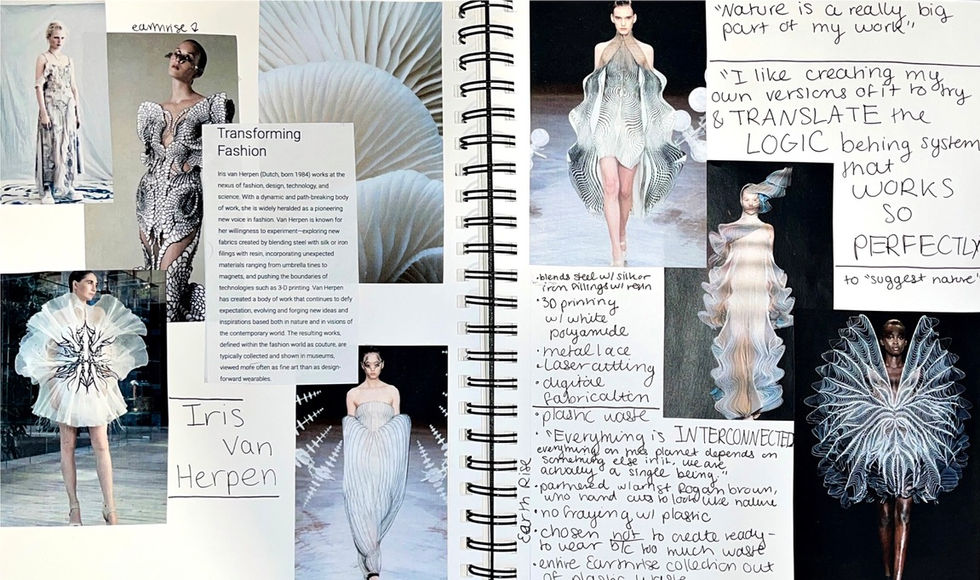 earthrise
Transforming
Fashion
Iris van Herpen (Dutch, born 1984) works at the
nexus of fashion, design, technology, and
science. With a dynamic and path-breaking body
of work, she is widely heralded as a pioneering
new voice in fashion. Van Herpen is known for
her willingness to experiment—exploring new
fabrics created by blending steel with silk or iron
filings with resin, incorporating unexpected
materials ranging from umbrella tines to
magnets, and pushing the boundaries of
technologies such as 3-D printing. Van Herpen
has created a body of work that continues to defy
expectation, evolving and forging new ideas and
inspirations based both in nature and in visions of
the contemporary world. The resulting works,
defined within the fashion world as couture, are
typically collected and shown in museums,
viewed more often as fine art than as design-
forward wearables.
Iris
Van
Herpen
"Nature is a really big
part of my work"
"I like creating my
own versions of it to try
& TRANSLATE the
LOGIC behing system
that
WORKS
SO
PERFECTLY
to "suggest nature"
•blends steel w/ silk or
iron fillings w/ resin
•3D printing
w/ white
polyamide
•metal lace
•laser cutting
•digital
fabrication
•plastic waste
•"Everything is INTERCONNECTED
everything on this planet depends on
something else in it, we are
actually a single being."
•partnered w/ artist Rogan brown,
who hand cuts to look like nature
•no fraying w/ plastic
•chosen not to create ready-
to wear b/c too much waste
•entire Earthrise collection out
of plastic waste
Earth Rise